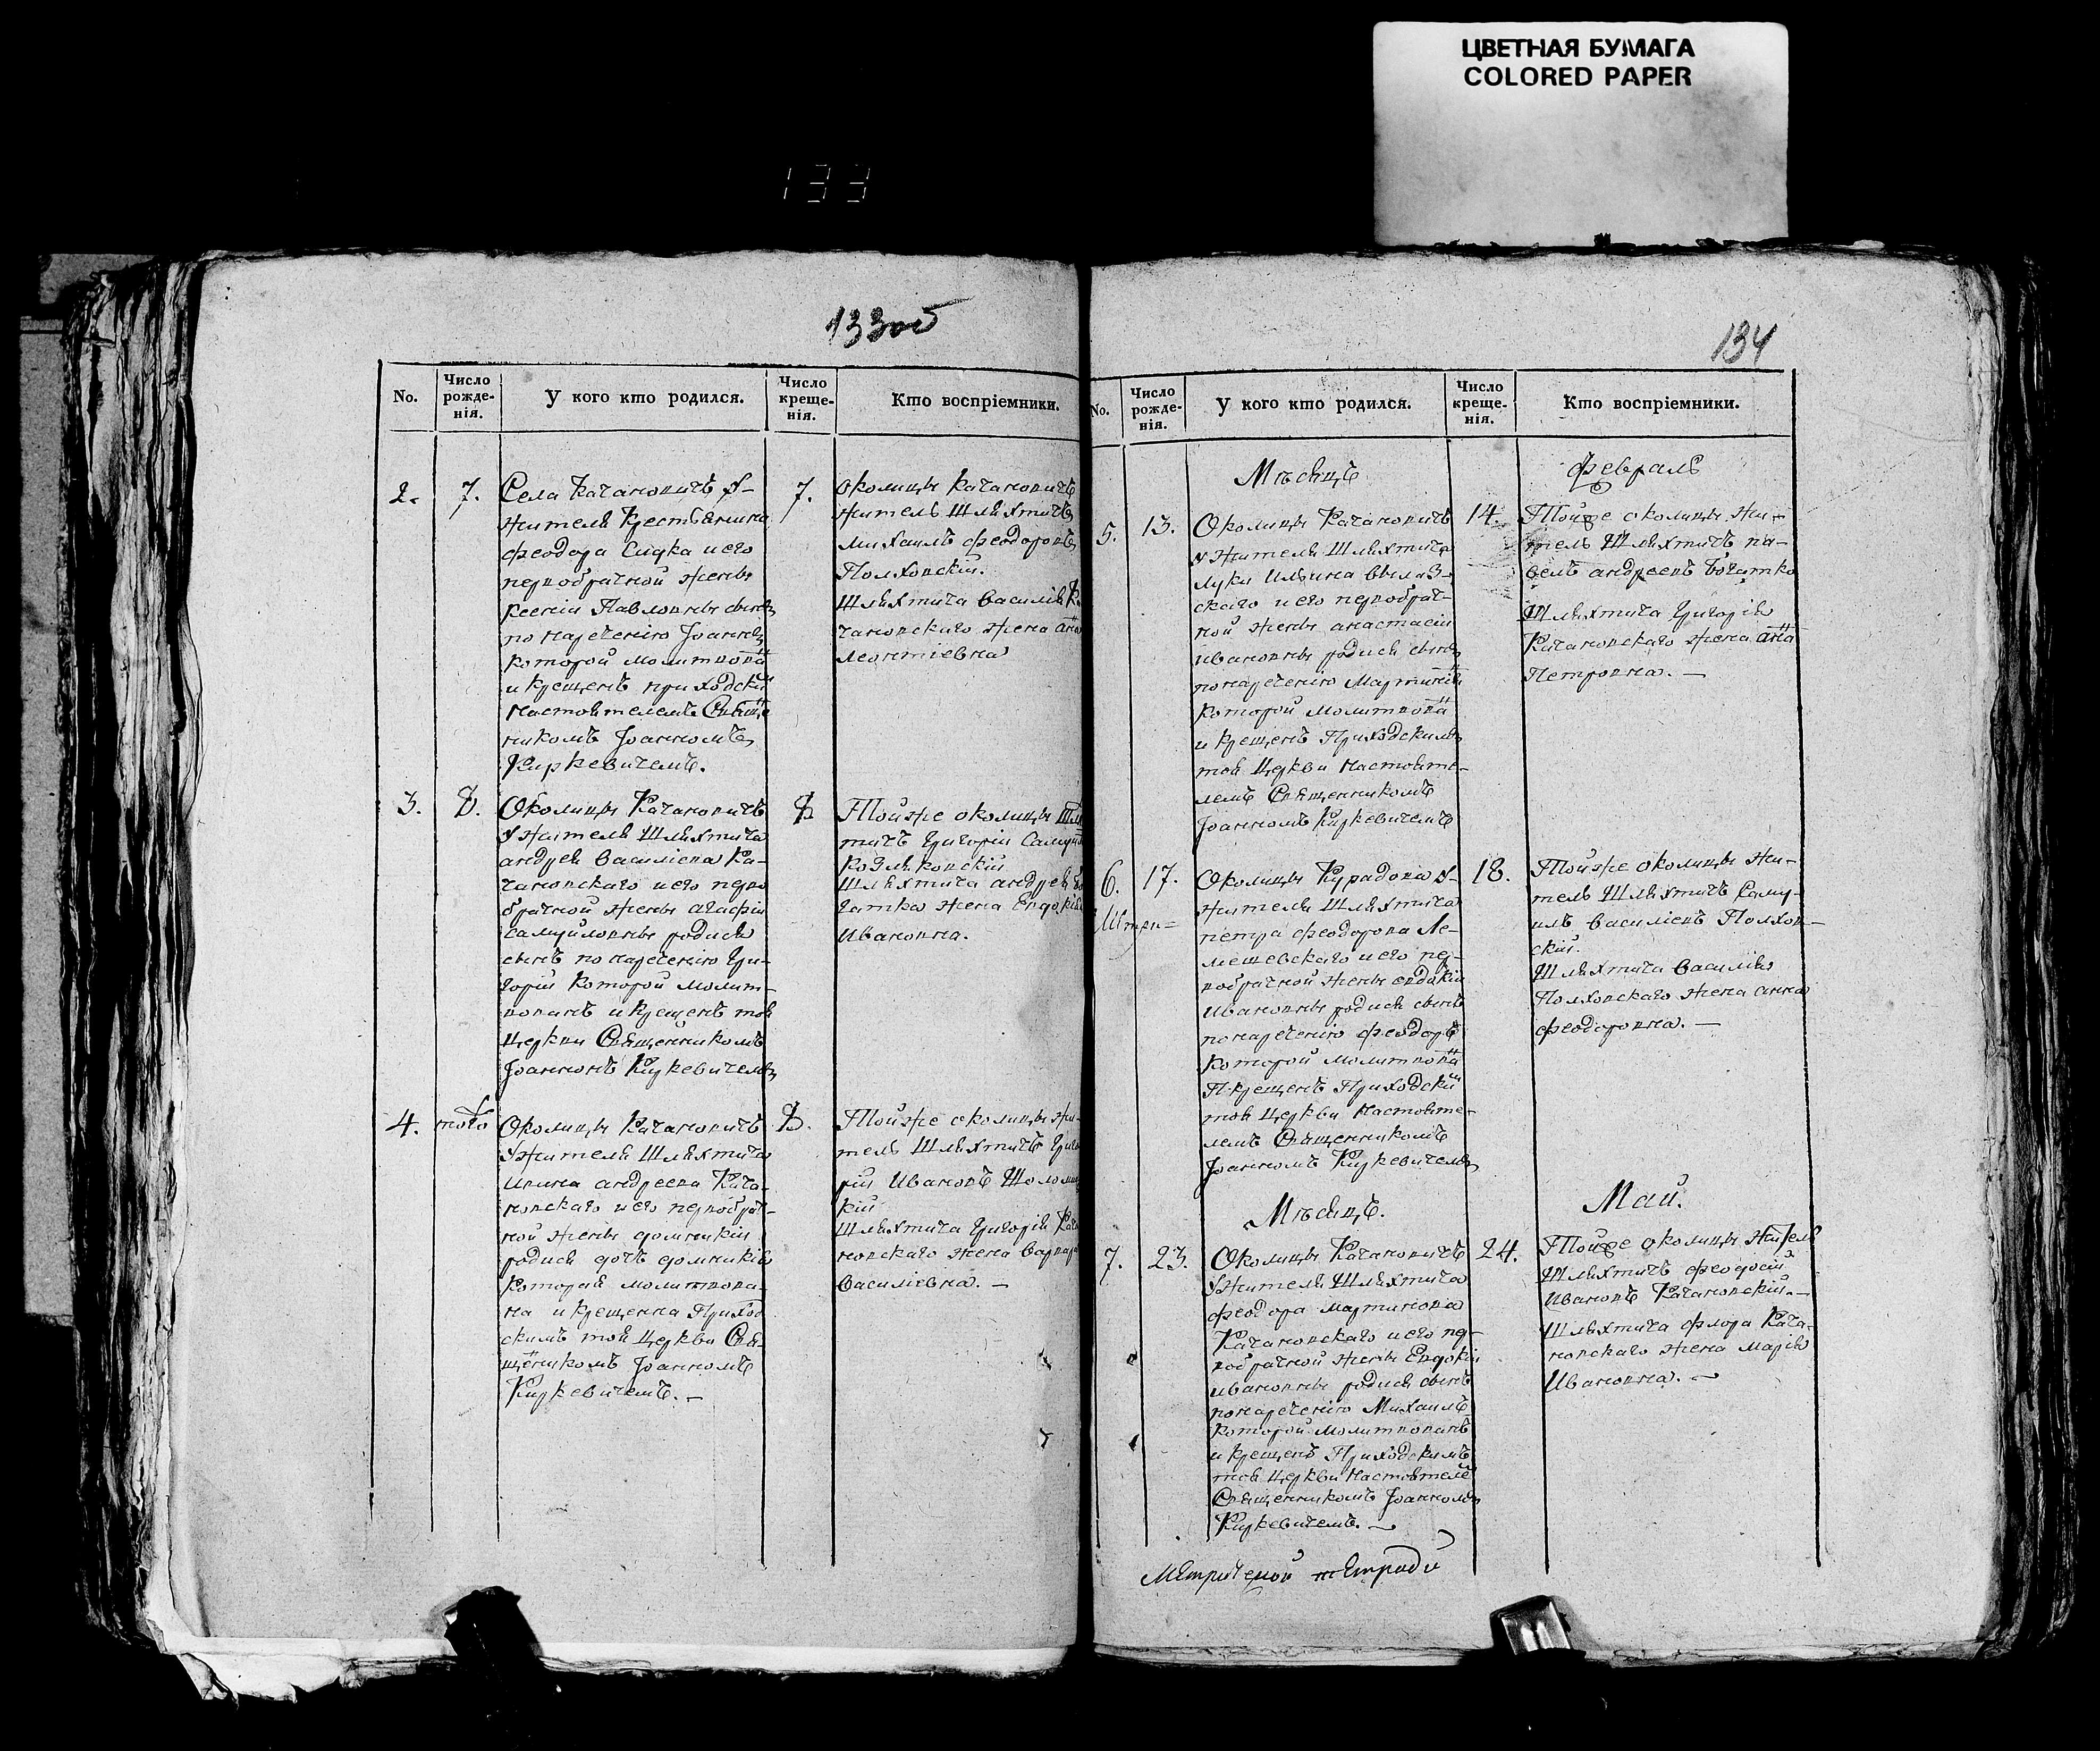 ЦВЕТНАЯ БУМАГА
COLORED PAPER
133
133об
No.
Число рожде-нія.
У кого кто родился.
Число креще-нія.
Кто воспріемники.
2.
7.
Села Качановичъ у
жителя Крестьянина
Феодора Сидка и его
первобрачной жены
Ксении Павловны сынъ
по наречению Іоаннъ
которой молитвова
и крещенъ приходски
Настоятелемъ Свяще
никомъ Іоанномъ
Киркевичемъ.
7.
Околицы Качановичъ
житель Шляхтичъ
Михаилъ Феодоровъ
Полховскій.
Шляхтича Василія К
чановскаго жена Анна
Леонтіевна
3.
8.
Околицы Качановичъ
у жителя Шляхтича
Андрея Василіева Ка-
чановскаго и его перво
брачной жены Агафіи
Самуйловны родися
сынъ по наречению Гри-
горій которой молит-
вованъ и крещенъ той
Церкви Священникомъ
Іоанномъ Киркевичемъ
8
Тойже околицы Шля
тичъ Григорій Самуй
Козляковскій
Шляхтича Андрея Бо
гатко жена Евдокія
Ивановна.
4.
того
Околицы Качановичъ
у жителя Шляхтича
Ивана Андреева Кача-
новскаго и его первобрач-
ной жены Домникіи
родися дочъ Домникія
которая молитвова-
на и крещенна Приход
скимъ той Церкви Свя-
щенникомъ Іоанномъ
Киркевичемъ. —
8.
Тойже околицы жи-
тель Шляхтичъ Григо
рій Ивановъ
кій
Шляхтича Григорія Кача
новскаго жена Варвара
Василіевна. —
134
No.
Число рожде-нія.
У кого кто родился.
Число креще-нія.
Кто воспріемники.
Мѣсяцъ
Февраль
5.
13.
Околицы Качановичъ
у жителя Шляхтича
Луки Ильина
скаго и его первобрач-
ной жены Анастасіи
Ивановны родися сынъ
по наречению Мартинъ
которой молитвова
и крещенъ Приходскимъ
той Церкви Настояте-
лемъ Священникомъ
Іоанномъ Киркевичемъ
14.
Тойже околицы жи-
тель Шляхтичъ Па-
велъ Андреевъ Богатко
Шляхтича Григорія
Качановскаго жена Анна
Петровна. —
6.
17.
Околицы Курадово у
жителя Шляхтича
Петра Феодорова Ле-
мешевскаго и его пер-
вобрачной жены Евдокіи
Ивановны родися сынъ
по наречению Феодоръ
которой молитвова
и крещенъ Приходски
той Церкви Настояте-
лемъ Священникомъ
Іоанномъ Киркевичемъ
18.
Тойже околицы жи-
тель Шляхтичъ Саму-
илъ Василіевъ Полхов-
скій.
Шляхтича Василія
Полховскаго жена Анна
Феодоровна. —
Мѣсяцъ.
Май.
7.
23.
Околицы Качановичъ
у жителя Шляхтича
Феодора Мартинова
Качановскаго и его пер-
вобрачной жены Евдокіи
Ивановны родися сынъ
по наречению Михаилъ
которой молитвованъ
и крещенъ Приходскимъ
той Церкви Настоятеле
Священникомъ Іоанномъ
Киркевичемъ. —
24.
Тойже околицы житель
Шляхтичъ Феодосій
Ивановъ Качановскій. —
Шляхтича Флора Кача-
новскаго жена Марія
Ивановна. —
Метричецкой тетради